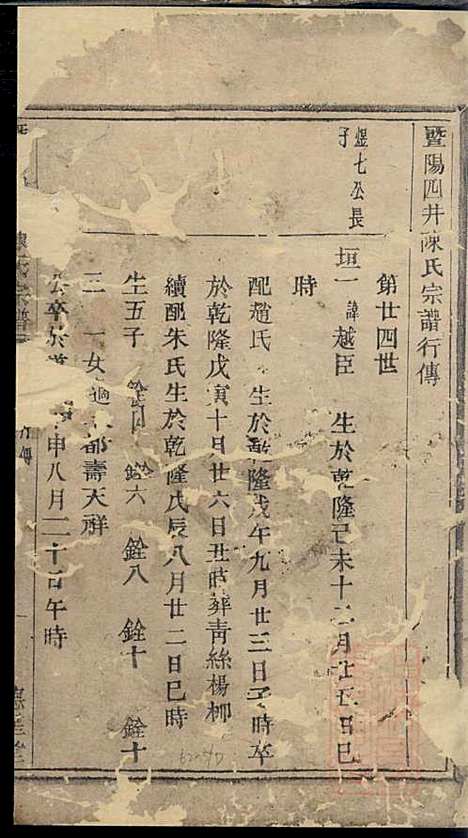 暨陽四井陳氏宗譜行傳
第廿四世
煜七公長
子
垣一 諱越臣 生於乾隆己未十二月廿五日巳
時
配趙氏 生於乾隆戊午九月廿三日子時卒
於乾隆戊寅十月廿六日丑時葬青絲楊柳
續配朱氏生於乾隆氏辰八月廿二日巳時
生五子 銓四 銓六 銓八 銓十 銓十
三 一女適 都壽天祥
公卒於 申八月二十日午時
陳氏宗譜
行傳
一